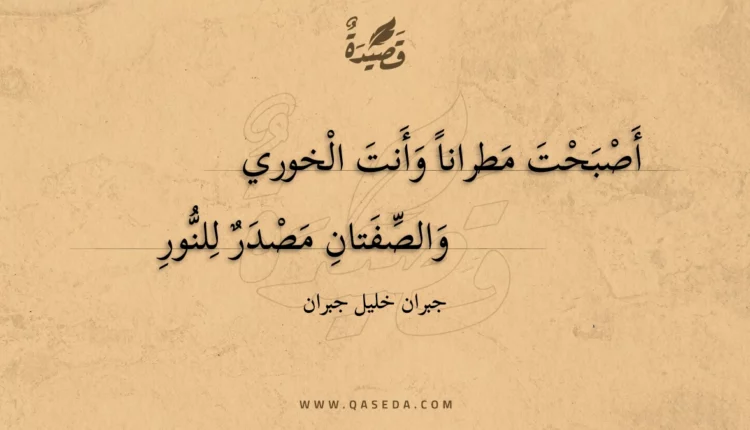 قَصِيْدَةٌ
أَصْبَحْتَ مَطراناً وَأَنتَ الْخوري
وَالصِّفَتانِ مَصْدَرٌ لِلنُّورِ
جبران خليل جبران
WWW.QASEDA.COM